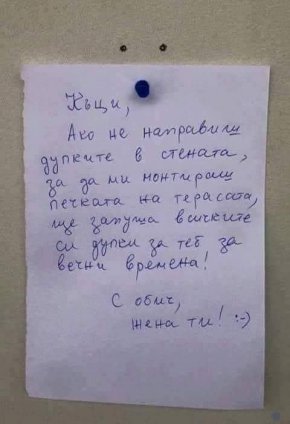 Къщи,
Ако не направиш
дупките в стената,
за да ми монтираш
печката на терасата,
ще запуша всичките
си дупки за теб за
вечни времена!
С обич,
жена ти! :-)